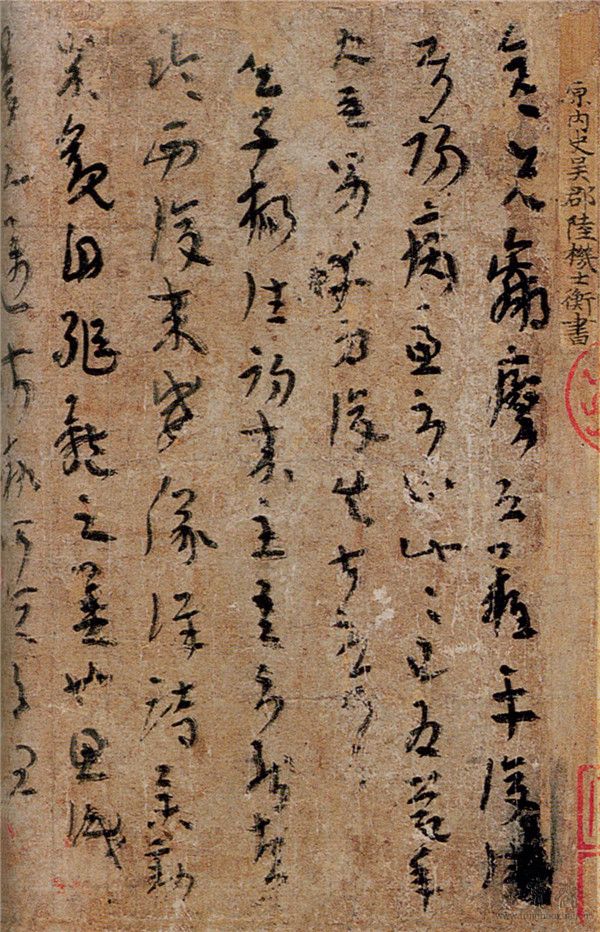 原內史吳郡陸機士衡書
彥先羸瘵恐難平復往
屬初病慮不止此此已為慶承
使唯男幸為復失前憂耳
子楊往初來主吾不能盡
臨西復來威儀詳跱舉動
成觀自軀體之美也思識
量之邁前執所恆有宜